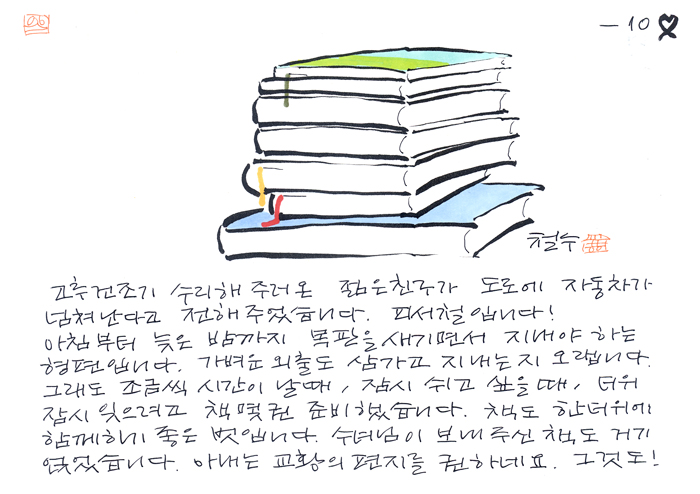 －10
철수
고추건조기 수리해 주러온 젊은친구가 도로에 자동차가
넘쳐난다고 전해주었습니다. 피서철입니다!
아침부터 늦은 밤까지 목판을 새기면서 지내야 하는
형편입니다. 가벼운 외출도 삼가고 지내는지 오랩니다.
그래도 조금씩 시간이 날때, 잠시 쉬고 싶을 때, 더위
잠시 잊으려고 책몇권 준비했습니다. 책도 한더위에
함께하기 좋은 벗입니다. 수녀님이 보내주신 책도 거기
얹었습니다. 아내는 교황의 편지를 권하네요. 그것도!